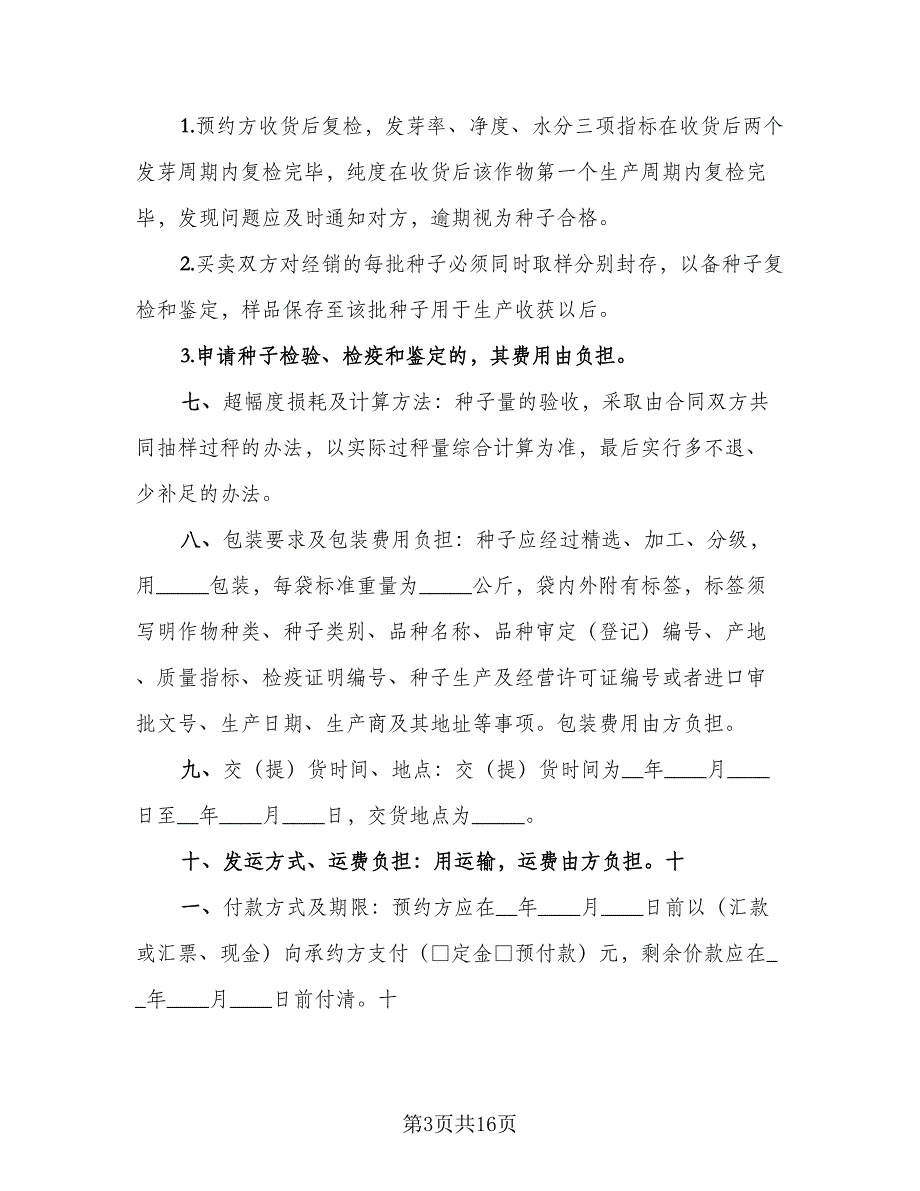 1.预约方收货后复检，发芽率、净度、水分三项指标在收货后两个
发芽周期内复检完毕，纯度在收货后该作物第一个生产周期内复检完
毕，发现问题应及时通知对方，逾期视为种子合格。
2.买卖双方对经销的每批种子必须同时取样分别封存，以备种子复
检和鉴定，样品保存至该批种子用于生产收获以后。
3.申请种子检验、检疫和鉴定的，其费用由负担。
七、超幅度损耗及计算方法：种子量的验收，采取由合同双方共
同抽样过秤的办法，以实际过秤量综合计算为准，最后实行多不退、
少补足的办法。
八、包装要求及包装费用负担：种子应经过精选、加工、分级，
用_____包装，每袋标准重量为_____公斤，袋内外附有标签，标签须
写明作物种类、种子类别、品种名称、品种审定（登记）编号、产地
、质量指标、检疫证明编号、种子生产及经营许可证编号或者进口审
批文号、生产日期、生产商及其地址等事项。包装费用由方负担。
九、交（提）货时间、地点：交（提）货时间为__年____月____
日至__年____月____日，交货地点为_____。
十、发运方式、运费负担：用运输，运费由方负担。十
一、付款方式及期限：预约方应在__年____月____日前以（汇款
或汇票、现金）向承约方支付（□定金□预付款）元，剩余价款应在_
_年____月____日前付清。十
第3页共16页